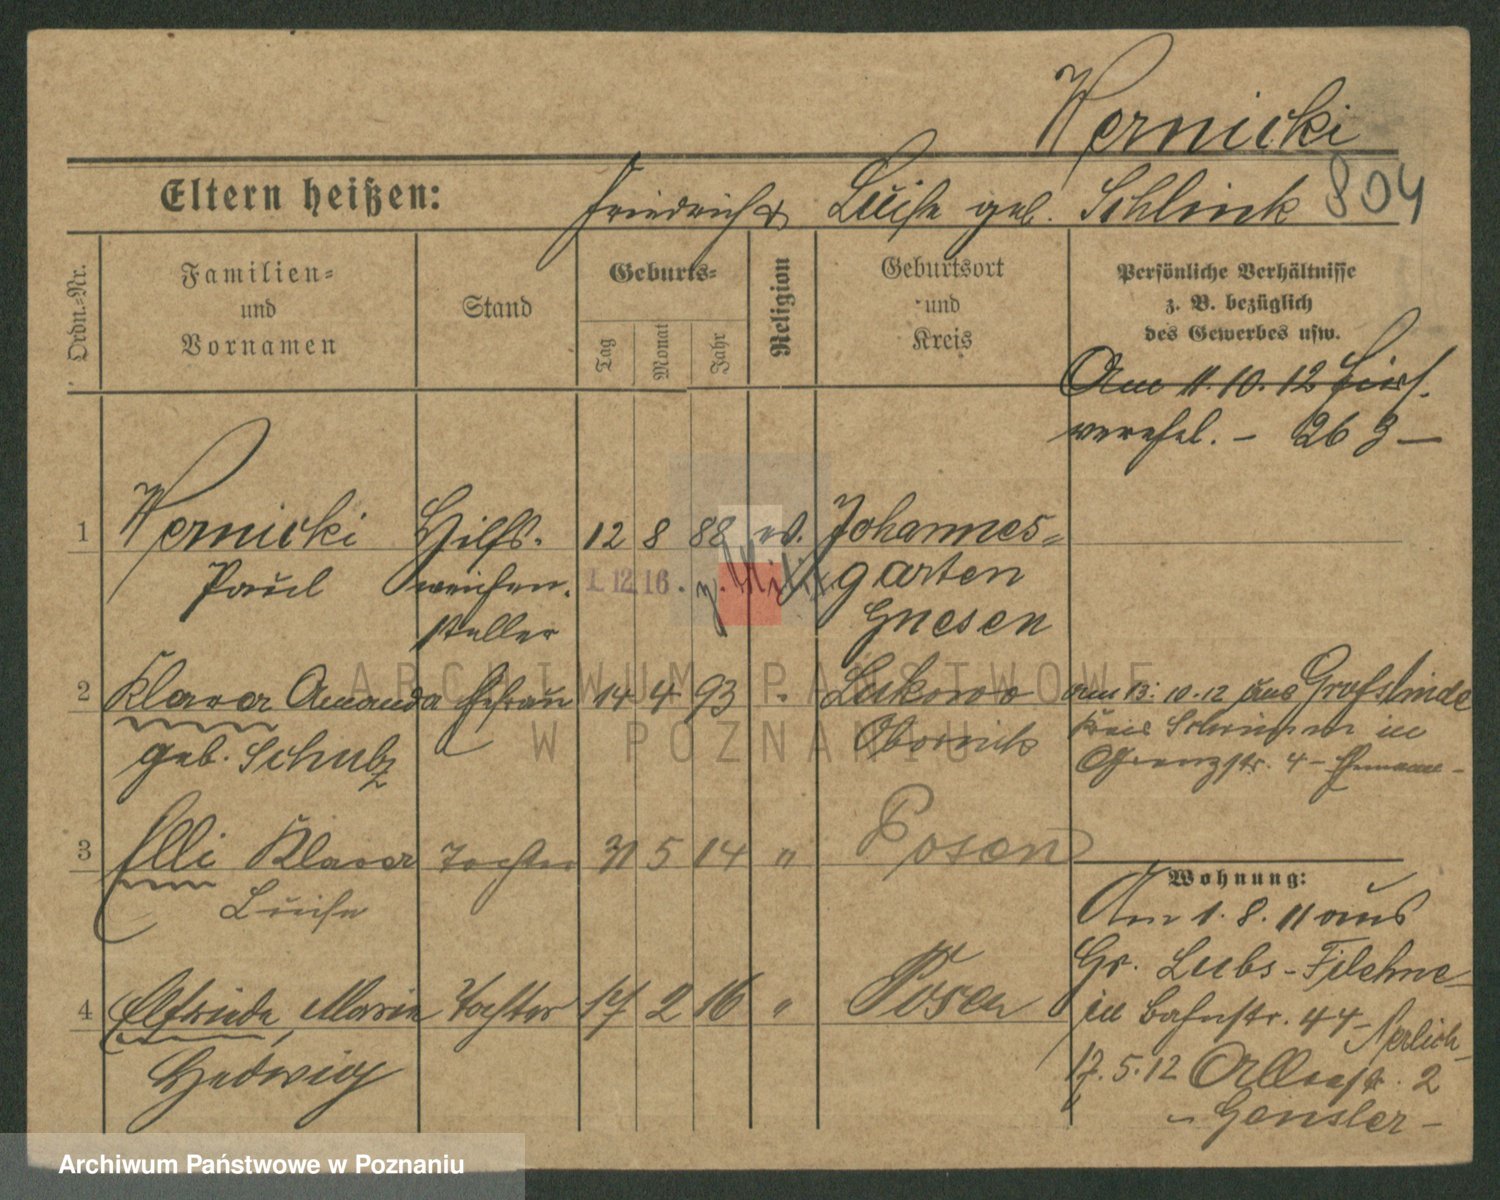 Wernicki
Eltern heißen: Friedrich & Luise geb. Schlink 804
Ordn.-Nr.
Familien-
und
Vornamen
Stand
Geburts-
Tag
Monat
Jahr
Religion
Geburtsort
und
Kreis
Persönliche Verhältnisse
z. B. bezüglich
des Gewerbes usw.
Am 11. 10. 12 hier
verehel. – 263 –
1 Wernicki Hilfs- 12 8 88 ev. Johannes-
Paul weichen- 1. 12 16. z. garten
steller Gnesen
2 Klara Amanda Ehefrau 14 4 93 " Lukowo am 13. 10. 12 aus Grafslinde
geb. Schulz Obornik Kreis Schrimm in
str. 4 – Ehemann –
3 Elli Klara Tochter 31 5 14 " Posen
Luise
Wohnung:
Am 1. 8. 11 aus
Gr. Lubs – Filehne –
4 Elfriede, Marie Tochter 17 2 16 " Posen in Bahnstr. 44 –
Hedwig
17. 5. 12 2
– Gensler –
ARCHIWUM PAŃSTWOWE
W POZNANIU
Archiwum Państwowe w Poznaniu